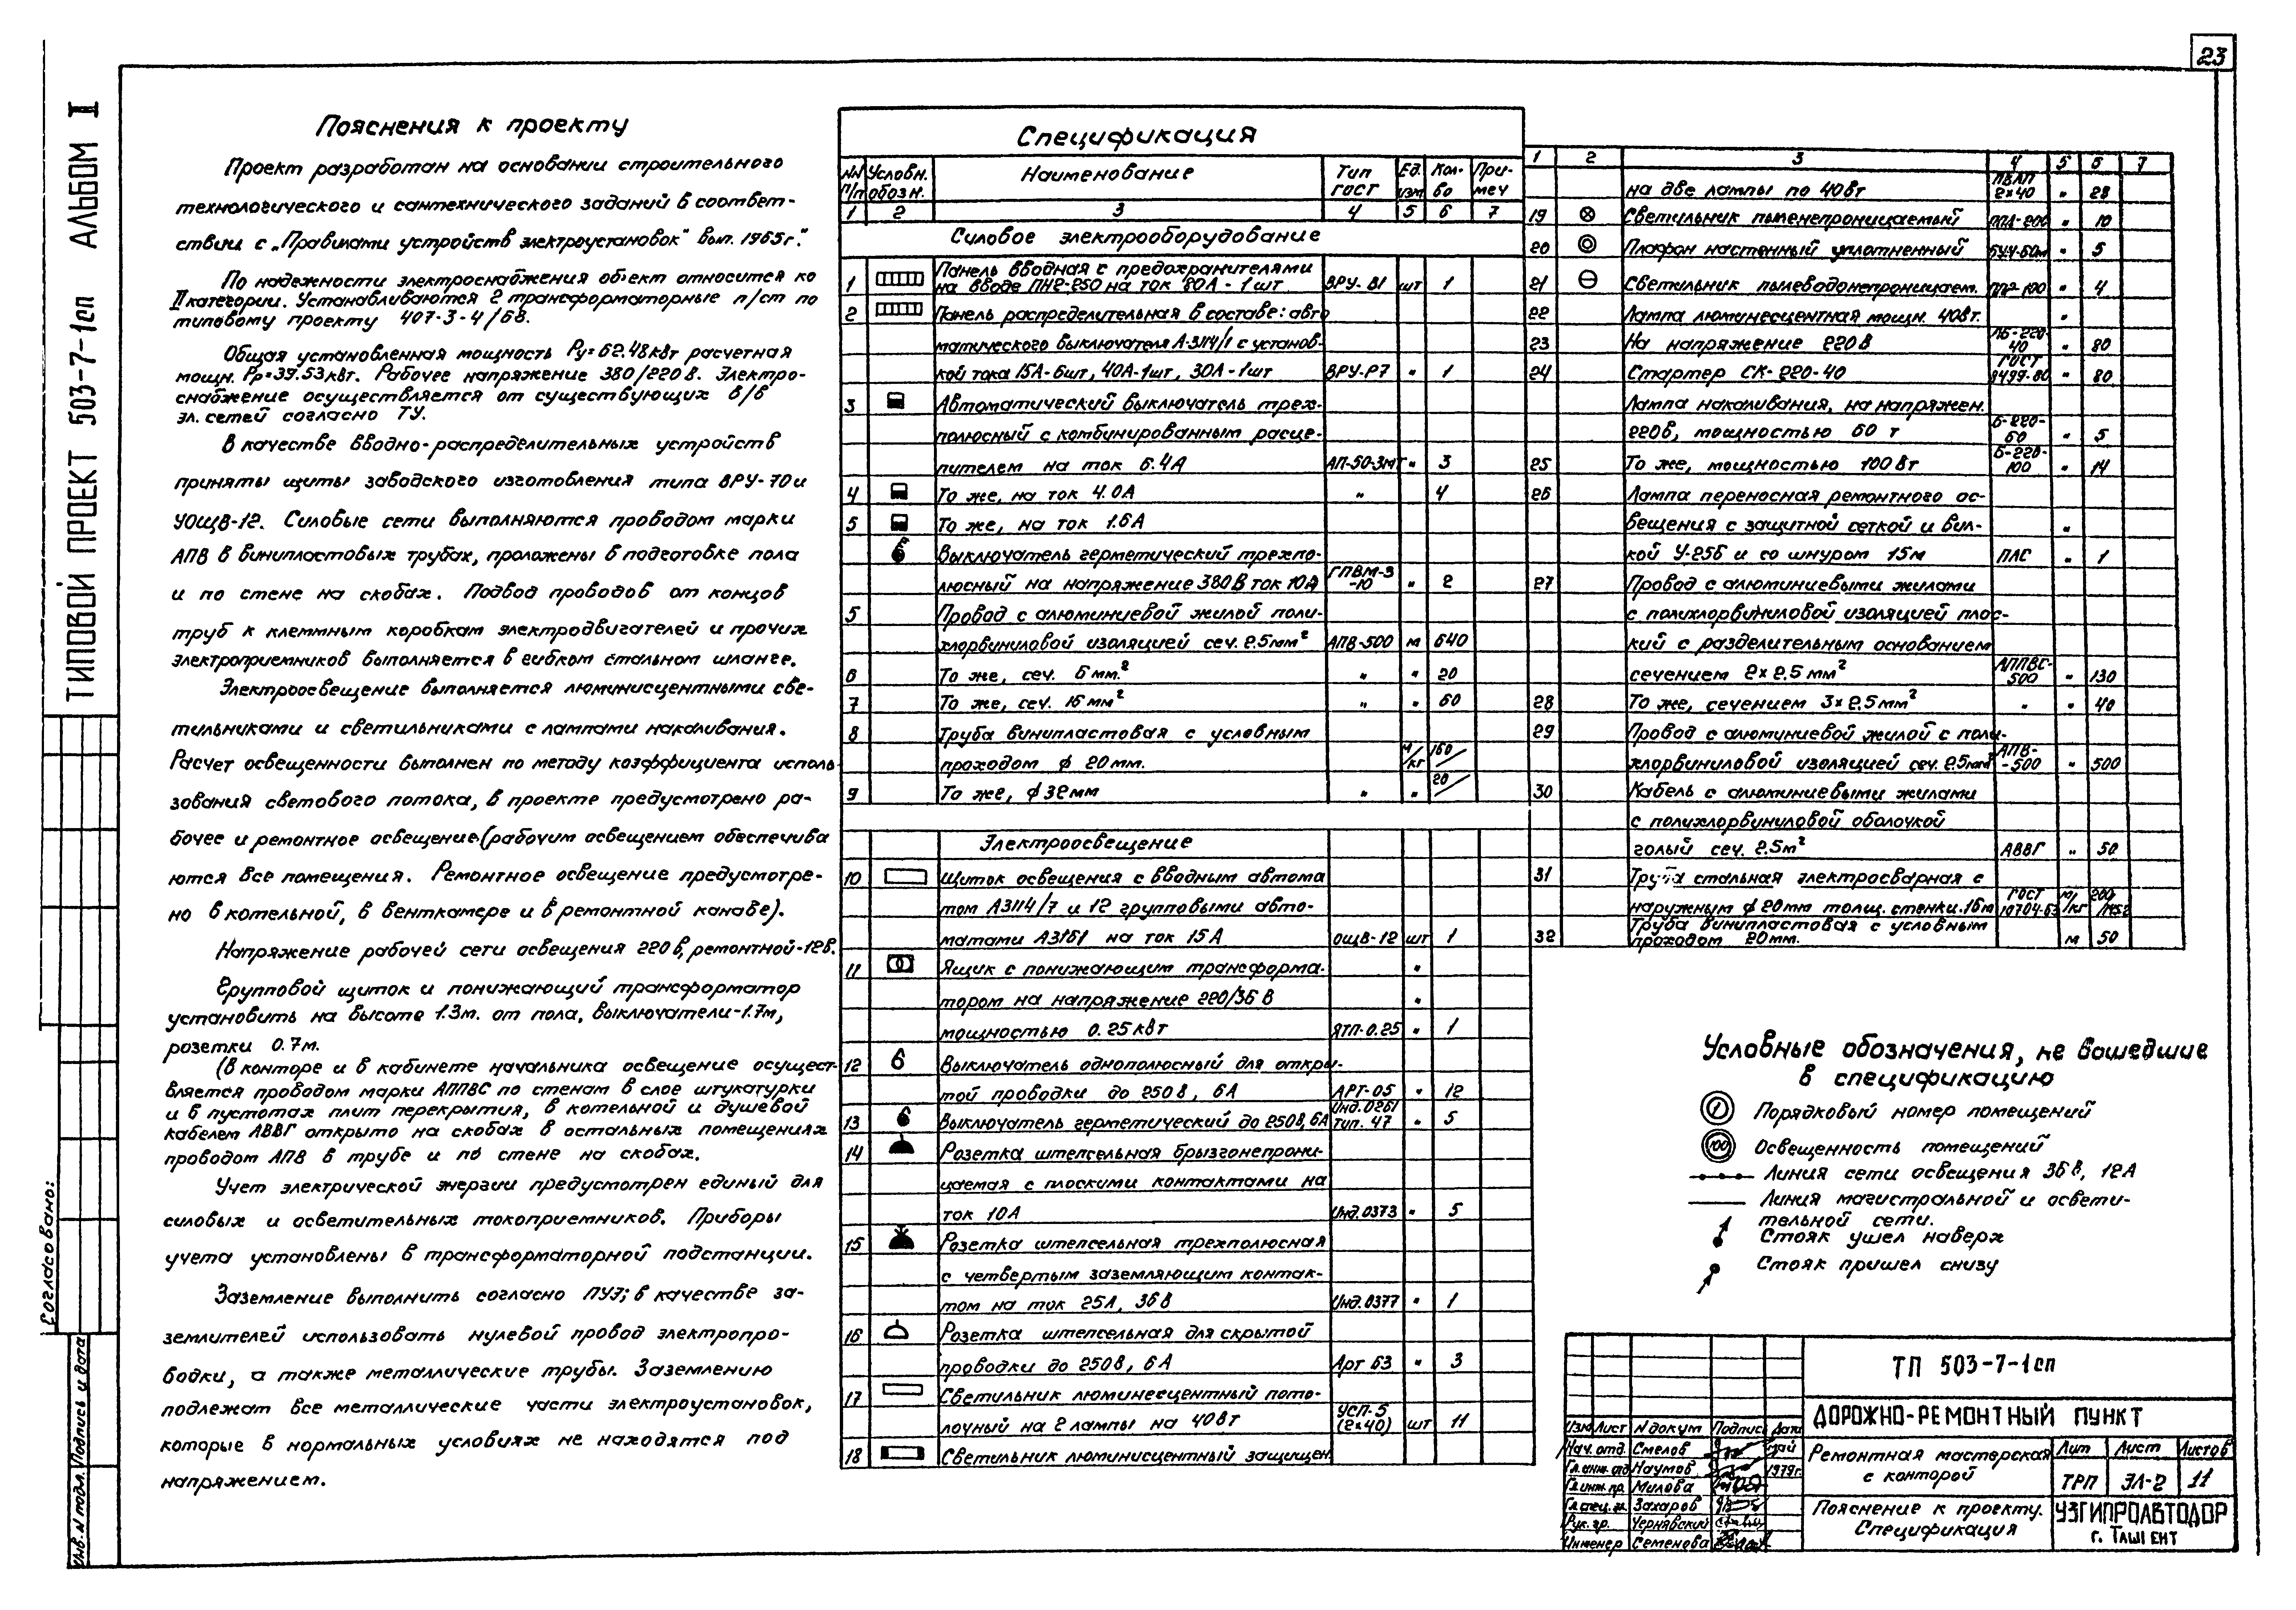 23
ТИПОВОЙ ПРОЕКТ 503-7-1сп АЛЬБОМ II
Согласовано:
Подпись и дата
Инв. N подл.
Пояснения к проекту
Проект разработан на основании строительного
технологического и сантехнического заданий в соответ-
ствии с „Правилами устройств электроустановок" вып. 1965г."
По надежности электроснабжения объект относится ко
II категории. Устанавливаются 2 трансформаторные п/ст по
типовому проекту 407-3-4/68.
Общая установленная мощность Ру=62.48квт расчетная
мощн. Рр=39.53квт. Рабочее напряжение 380/220в. Электро-
снабжение осуществляется от существующих в/в
эл. сетей согласно ТУ.
В качестве вводно-распределительных устройств
приняты щиты заводского изготовления типа ВРУ-70 и
УОЩВ-12. Силовые сети выполняются проводом марки
АПВ в винипластовых трубах, проложены в подготовке пола
и по стене на скобах. Подвод проводов от концов
труб к клеммным коробкам электродвигателей и прочих
электроприемников выполняется в гибком стальном шланге.
Электроосвещение выполняется люминисцентными све-
тильниками и светильниками с лампами накаливания.
Расчет освещенности выполнен по методу коэффициента исполь
зования светового потока, в проекте предусмотрено ра-
бочее и ремонтное освещение (рабочим освещением обеспечива
ются все помещения. Ремонтное освещение предусмотре-
но в котельной, в венткамере и в ремонтной канаве).
Напряжение рабочей сети освещения 220в, ремонтной-12в.
Групповой щиток и понижающий трансформатор
установить на высоте 1.3м. от пола, выключатели-1.7м,
розетки 0.7м.
(В конторе и в кабинете начальника освещение осущест-
вляется проводом марки АППВС по стенам в слое штукатурки
и в пустотах плит перекрытия, в котельной и душевой
кабелем АВВГ открыто на скобах в остальных помещениях
проводом АПВ в трубе и по стене на скобах.
Учет электрической энергии предусмотрен единый для
силовых и осветительных токоприемников. Приборы
учета установлены в трансформаторной подстанции.
Заземление выполнить согласно ПУЭ; в качестве за-
землителей использовать нулевой провод электропро-
водки, а также металлические трубы. Заземлению
подлежат все металлические части электроустановок,
которые в нормальных условиях не находятся под
напряжением.
Спецификация
NN п/п Условн. обозн. Наименование Тип ГОСТ Ед. изм Кол-во При-меч
1 2 3 4 5 6 7
Силовое электрооборудование
Панель вводная с предохранителями
1 на вводе ПН2-250 на ток 80А - 1шт. ВРУ-В1 шт 1
2 Панель распределительная в составе: авто
матического выключателя А-3114/1 с установ-
кой тока 15А-6шт, 40А-1шт, 30А-1шт ВРУ-Р7 " 1
3 Автоматический выключатель трех-
полюсный с комбинированным расце-
пителем на ток 6.4А АП-50-3МТ " 3
4 То же, на ток 4.0А " 4
5 То же, на ток 1.6А
Выключатель герметический трехпо-
люсный на напряжение 380В ток 10А ГПВМ-3-10 " 2
5 Провод с алюминиевой жилой поли-
хлорвиниловой изоляцией сеч. 2.5мм² АПВ-500 м 640
6 То же, сеч. 6мм.² " " 20
7 То же, сеч. 16мм² " " 60
8 Труба винипластовая с условным
проходом ф 20мм. м/кг 160/
9 То же, ф 32мм " " 20/
Электроосвещение
10 Щиток освещения с вводным автома
том А3114/7 и 12 групповыми авто-
матами А3161 на ток 15А ОЩВ-12 шт 1
11 Ящик с понижающим трансформа- "
тором на напряжение 220/36В "
мощностью 0.25квт ЯТП-0.25 " 1
12 Выключатель однополюсный для откры-
той проводки до 250В, 6А АРТ-05 " 12
13 Выключатель герметический до 250В, 6А Инд. 0261 тип. 47 " 5
14 Розетка штепсельная брызгонепрони-
цаемая с плоскими контактами на
ток 10А Инд.0373 " 5
15 Розетка штепсельная трехполюсная
с четвертым заземляющим контак-
том на ток 25А, 36В Инд.0377 " 1
16 Розетка штепсельная для скрытой
проводки до 250В, 6А Арт 63 " 3
17 Светильник люминесцентный пото-
лочный на 2 лампы на 40вт УСП-5 (2×40) шт 11
18 Светильник люминисцентный защищен.
1 2 3 4 5 6 7
на две лампы по 40вт ПВЛП 2×40 " 28
19 Светильник пыленепроницаемый ППД-200 " 10
20 Плафон настенный уплотненный " 5
21 Светильник пылеводонепроницаем. ППР-100 " 4
22 Лампа люминесцентная мощн. 40вт. "
23 На напряжение 220В ЛБ-220-40 " 80
24 Стартер СК-220-40 ГОСТ " 80
Лампа накаливания, на напряжен.
220в, мощностью 60 т Б-220-60 " 5
25 То же, мощностью 100вт Б-220-100 " 14
26 Лампа переносная ремонтного ос-
вещения с защитной сеткой и вил- "
кой У-256 и со шнуром 15м ПЛС " 1
27 Провод с алюминиевыми жилами
с полихлорвиниловой изоляцией плос-
кий с разделительным основанием
сечением 2×2.5мм² АППВС-500 " 130
28 То же, сечением 3×2.5мм² " " 40
29 Провод с алюминиевой жилой с поли-
хлорвиниловой изоляцией сеч. 2.5мм² АПВ-500 " 500
30 Кабель с алюминиевыми жилами
с полихлорвиниловой оболочкой
голый сеч. 2.5м² АВВГ " 50
31 Труба стальная электросварная с
наружным ф 20мм толщ. стенки.16м ГОСТ 10704-63 м/кг 200/
32 Труба винипластовая с условным
проходом 20мм. м 50
Условные обозначения, не вошедшие
в спецификацию
1 Порядковый номер помещений
100 Освещенность помещений
Линия сети освещения 36В, 12А
Линия магистральной и освети-
тельной сети.
Стояк ушел наверх
Стояк пришел снизу
ТП 503-7-1сп
ДОРОЖНО-РЕМОНТНЫЙ ПУНКТ
Изм Лист N докум Подпись Дата
Нач. отд. Смелов май
Гл. инж. отд Наумов 1979г.
Гл. инж. пр. Милова
Гл. спец. Захаров
Рук. гр. Чернявский
Инженер Семенова
Ремонтная мастерская
с конторой
Лит Лист Листов
ТРП ЭЛ-2 11
Пояснение к проекту.
Спецификация
УЗГИПРОАВТОДОР
г. Ташкент